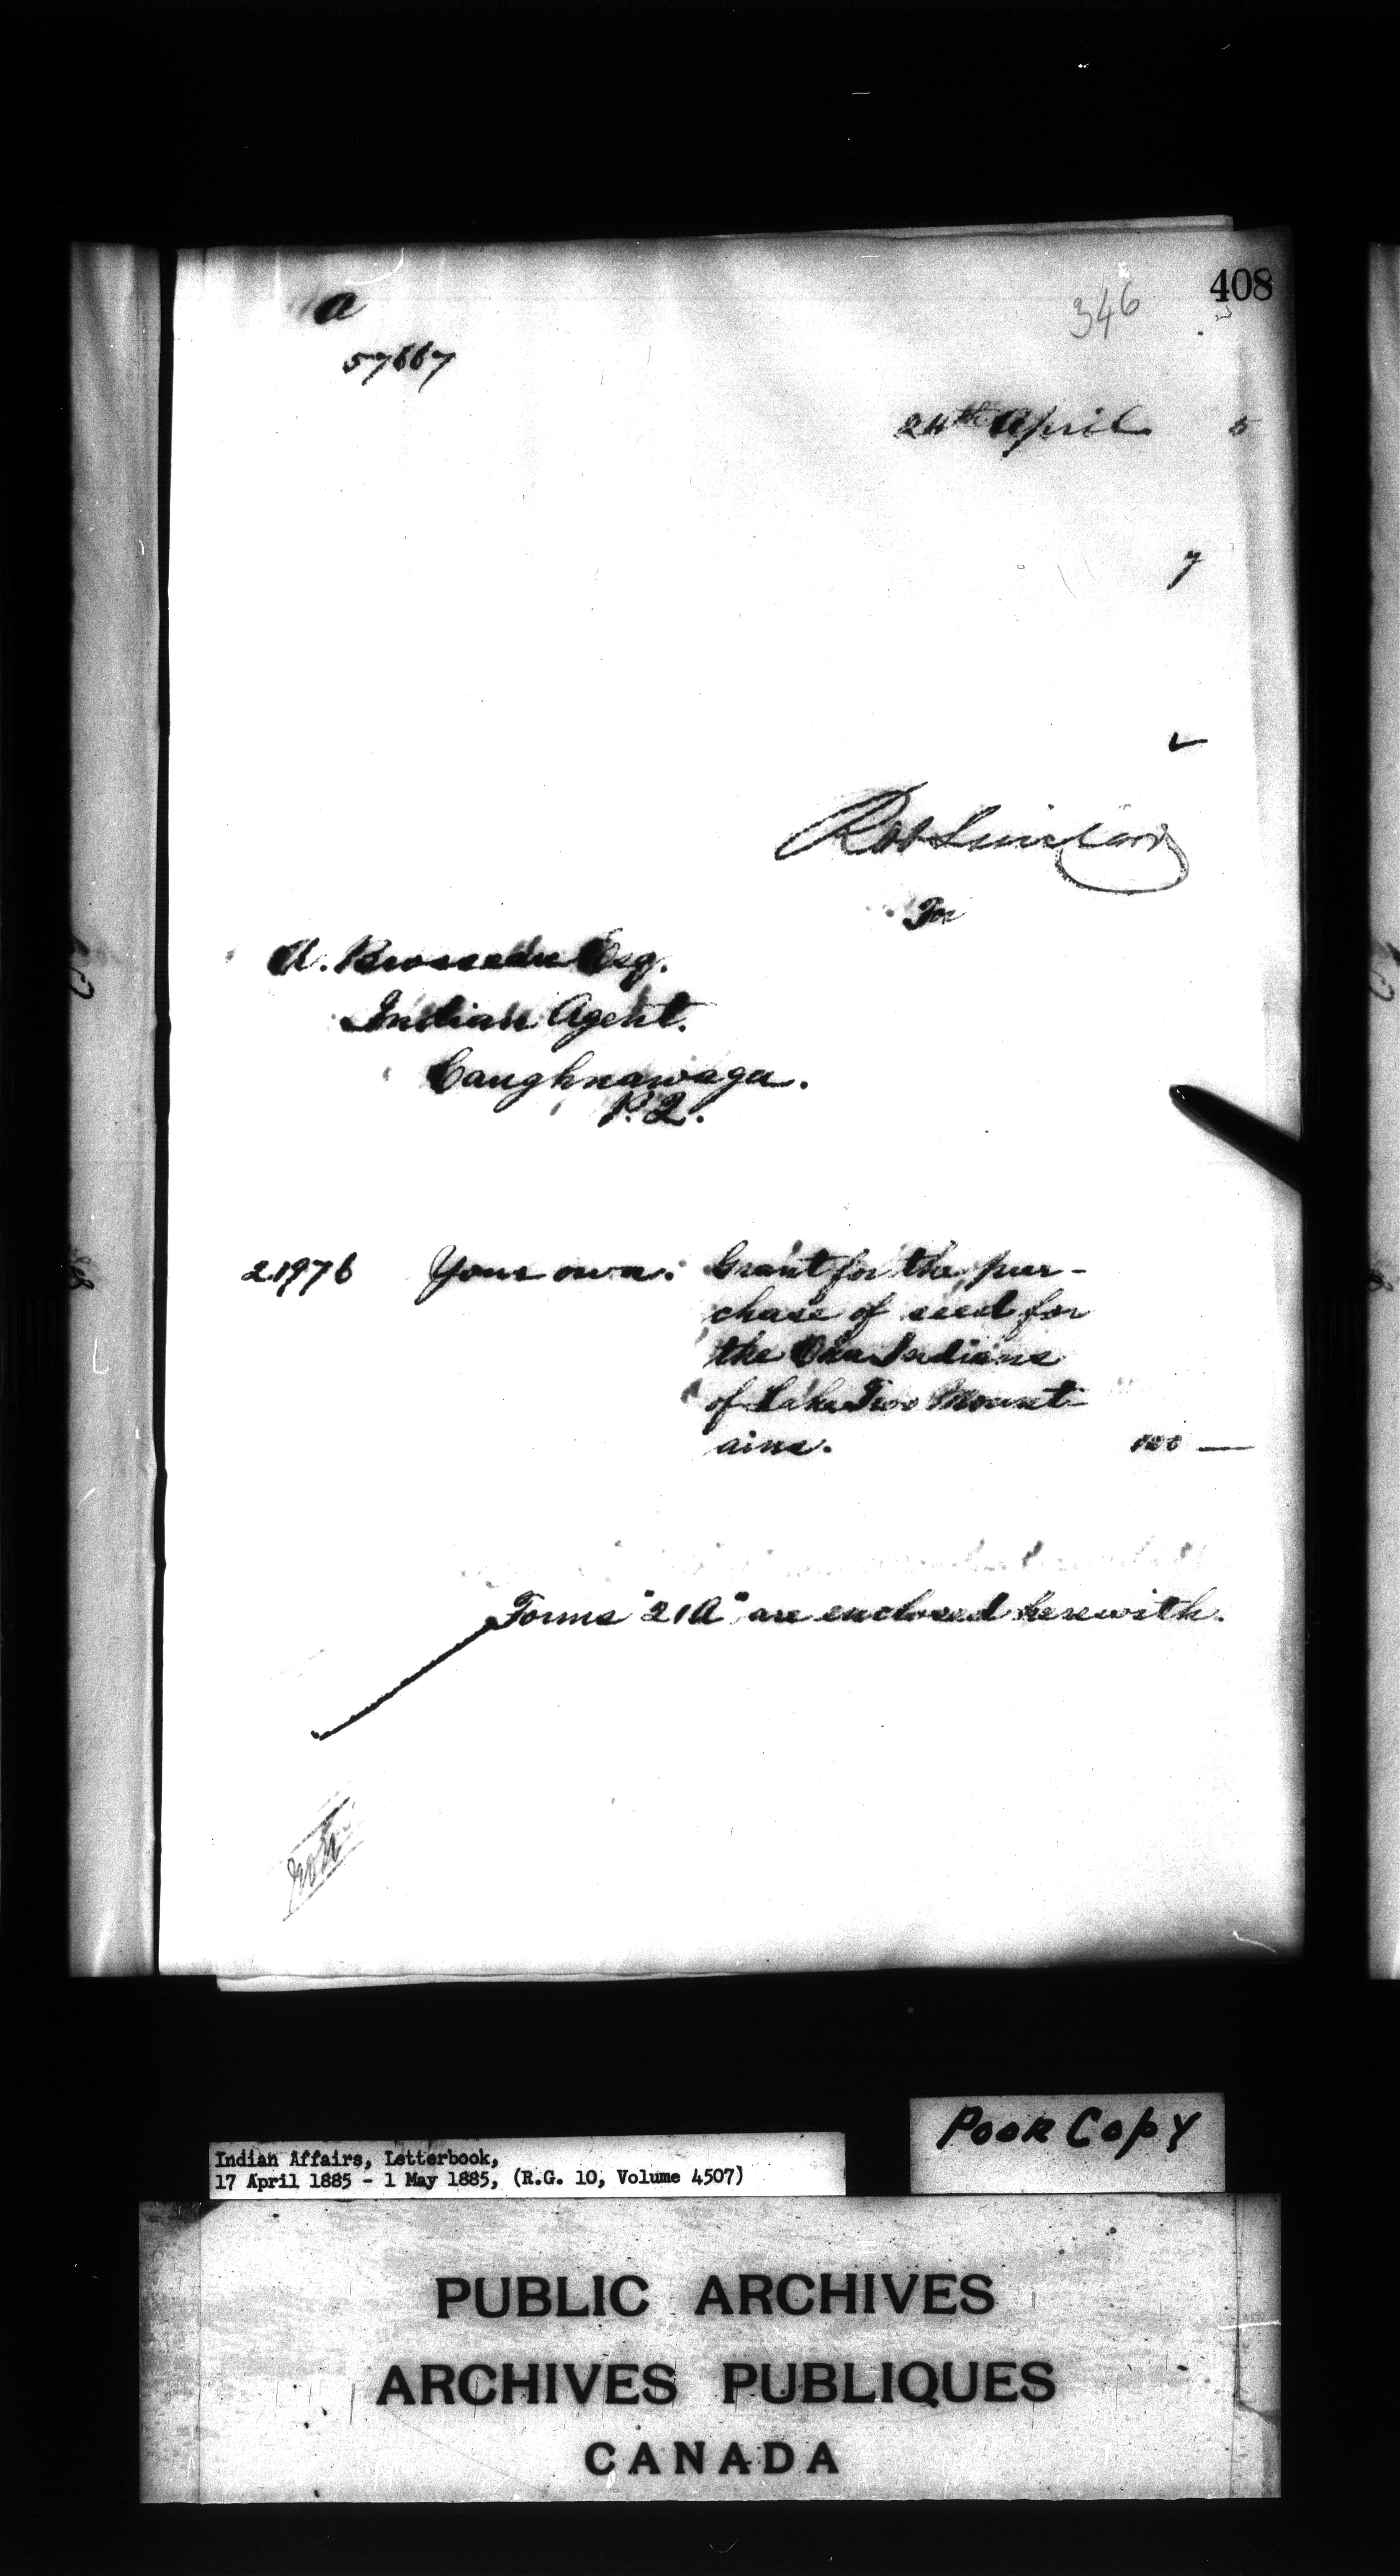 408
346
a
57667
24th April 5
y
Robt Sinclair
For
A. Brosseau Esq.
Indian Agent.
Caughnawaga.
P.Q.
21976 Your own: Grant for the pur-
chase of seed for
the Oka Indians
of Lake Two Mount-
ains. 100 —
Forms "21A" are enclosed herewith.
Poor Copy
Indian Affairs, Letterbook,
17 April 1885 - 1 May 1885, (R.G. 10, Volume 4507)
PUBLIC ARCHIVES
ARCHIVES PUBLIQUES
CANADA